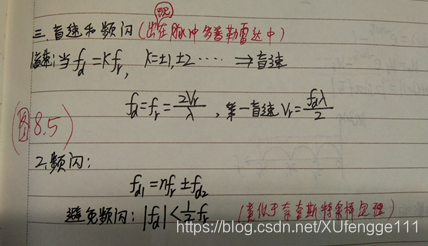 三.盲速和频闪(出现在脉冲多普勒雷达中)
盲速:当 fd=Kfr, K=±1,±2····· ⇒盲速
fd=fr=2Vr/λ,第一盲速Vr=fdλ/2
(图8.5)
2.频闪:
fd1=nfr±fd2
避免频闪:|fd|<1/2fr (类似于奈奎斯特采样定理)
https://blog.csdn.net/XUfengge111